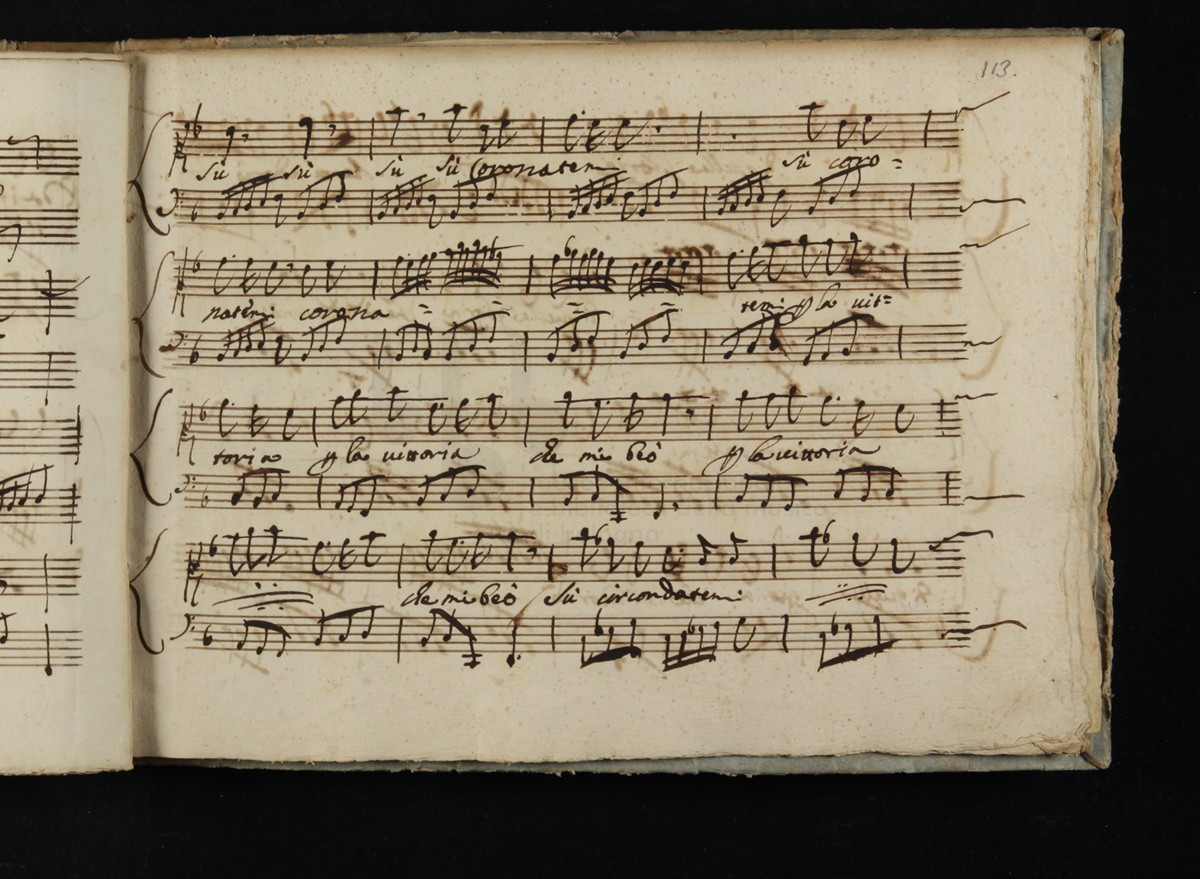 113.
sù sù sù sù Coronatemi sù coro=
natemi corona = = = = temi p la vit=
toria p la vittoria che mi beò p la vittoria
che mi beò sù circondatemi